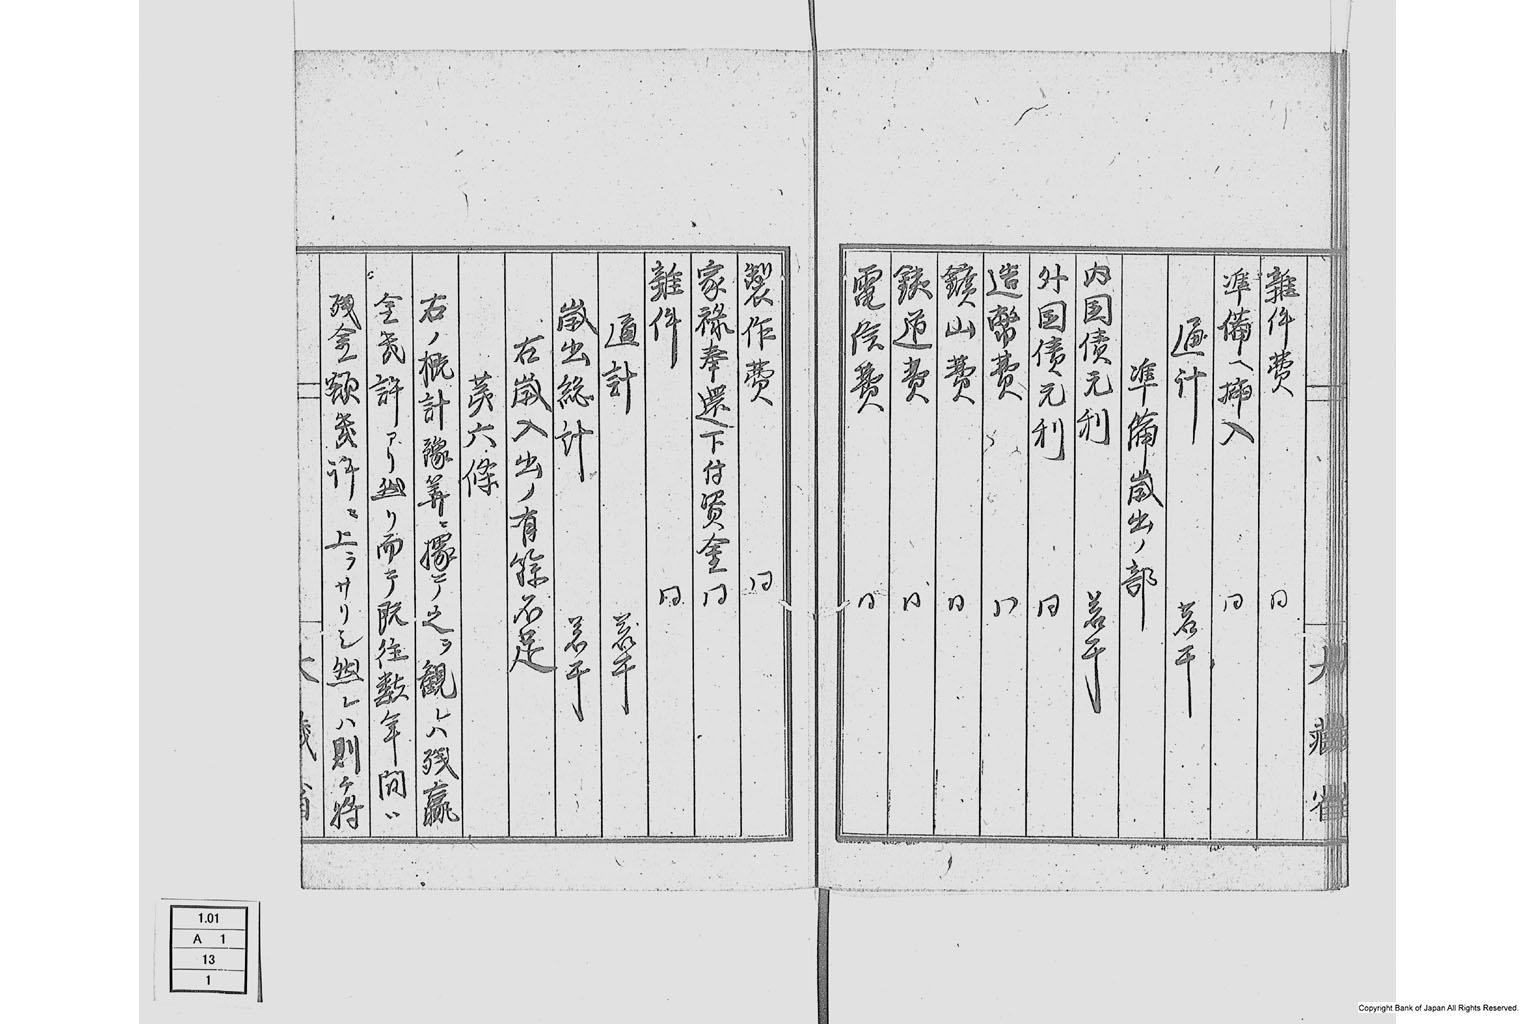 雑件費 同
準備ヘ挿入 同
通計 若干
準備歳出ノ部
内国債元利 若干
外国債元利 同
造幣費 同
鑛山費 同
鉄道費 同
電信費 同
大藏省
製作費 同
家禄奉還下付資金 同
雑件 同
通計 若干
歳出総計 若干
右歳入出ノ有餘不足
第六條
右ノ概計豫算ニ據テ之ヲ観レハ残贏
金幾許アリ然リ而テ既往数年間ニ
残金額幾許ニ上ラサリシ然レハ則チ将
大藏省
1.01
A 1
13
1
Copyright Bank of Japan All Rights Reserved.